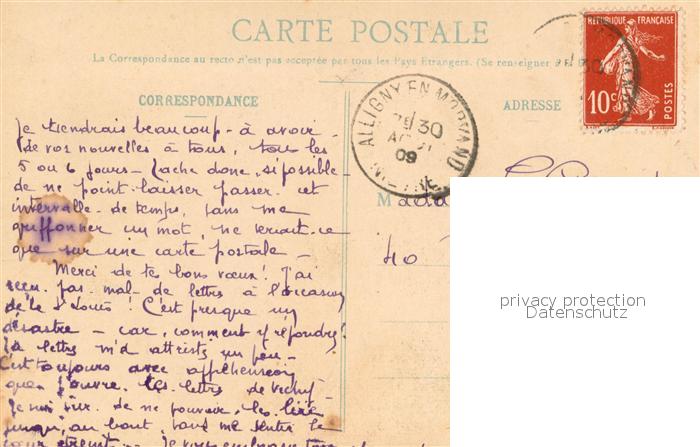 CARTE POSTALE
La Correspondance au recto n'est pas acceptée par tous les Pays Etrangers. (Se renseigner
CORRESPONDANCE
ADRESSE
RÉPUBLIQUE FRANÇAISE
10c
POSTES
ALLIGNY EN MORVAND
30
09
Je tiendrais beaucoup à avoir
de vos nouvelles à tous, tous les
5 ou 6 jours - Tache donc, si possible
de ne point laisser passer cet
intervalle de temps, sans me
griffonner un mot, ne serait-ce
que sur une carte postale -
Merci de tes bons vœux! J'ai
reçu pas mal de lettres à l'occasion
de la St Louis! C'est presque un
désastre - car, comment y répondre!
Ta lettre m'a attristé un peu -
C'est toujours avec appréhension
que j'ouvre les lettres de Vichy -
Je suis sûr de ne pouvoir les lire
jusqu'au bout sans me sentir le
cœur étreint - Je vous embrasse tous
Mada
40
privacy protection
Datenschutz